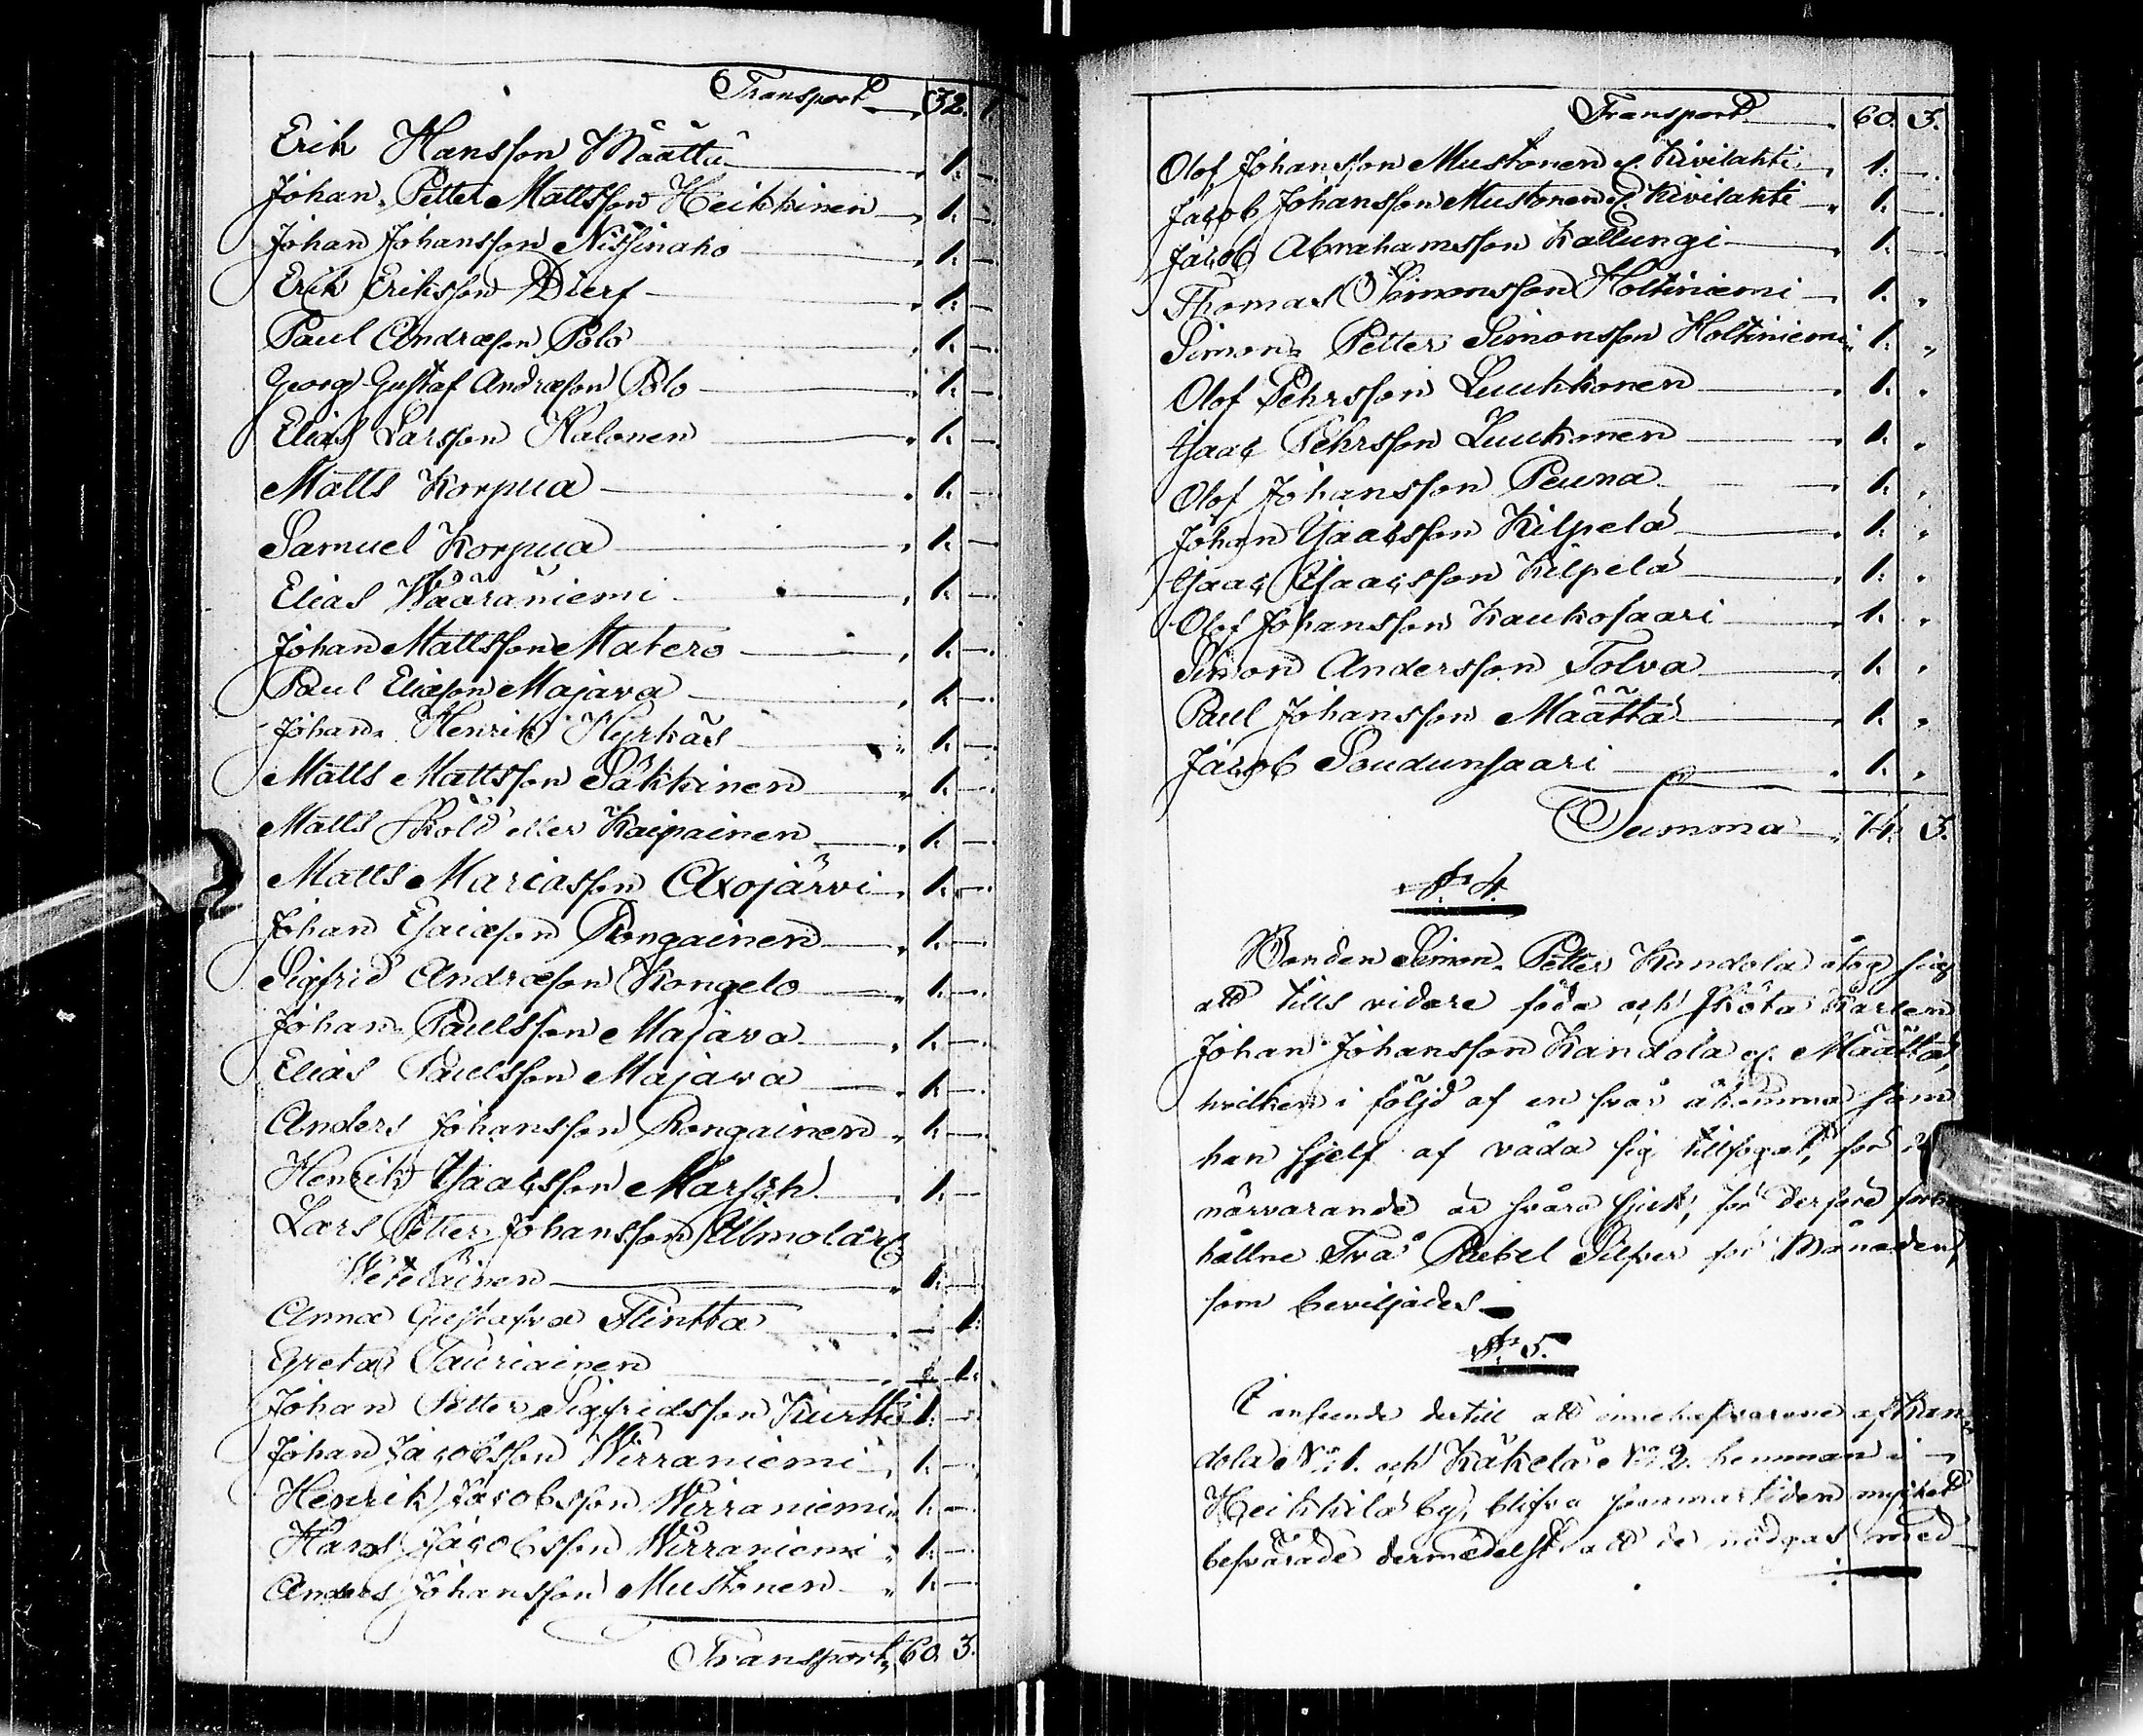 Transport 32. 1.
Erik Hansson Määttä 1. —
Johan Petter Mattsson Heikkinen 1. —
Johan Johansson Nissinaho 1. —
Erik Eriksson Dierf 1. —
Paul Andræson Polo 1. —
Georg Gustaf Andræson Polo 1. —
Elias Larsson Halonen 1. —
Matts Korpua 1. —
Samuel Korpua 1. —
Elias Wääräniemi 1. —
Johan Mattsson Matero 1. —
Paul Eliæson Majava 1. —
Johan Henrik Hyrkäs 1. —
Matts Mattsson Säkkinen 1. —
Matts Sköld eller Kaipainen 1. —
Matts Mariasson Axojärvi 1. —
Johan Esaiæson Rongainen 1. —
Sigfrid Andræson Kongelo 1. —
Johan Paulsson Majava 1. —
Elias Paulsson Majava 1. —
Anders Johansson Rongainen 1. —
Henrik Isacsson Marsch 1. —
Lars Petter Johansson Almolär
Weteläinen 1. —
Anna Gustafva Flintta — 1.
Greta Tauriainen — 1.
Johan Petter Sigfridsson Kurtti 1. —
Johan Jacobsson Wirraniemi 1. —
Henrik Jacobsson Wirraniemi 1. —
Hans Jacobsson Wirraniemi 1. —
Anders Johansson Mustonen 1. —
Transport 60. 3.
Transport 60. 3.
Olof Johansson Mustonen el. Kivilahti 1. —
Jacob Johansson Mustonen el. Kivilahti 1. —
Jacob Abrahamsson Kallungi 1. —
Thomas Simonsson Holtiniemi 1. "
Simon Petter Simonsson Holtiniemi 1. "
Olof Pehrsson Luukkonen 1. "
Isaac Pehrsson Luukonen 1. "
Olof Johansson Peuna 1. "
Johan Isacsson Kilpelä 1. "
Isaac Isaacsson Kilpelä 1. "
Olof Johansson Kaukosaari 1. "
Simon Andersson Tolva 1. "
Paul Johansson Määttä 1. "
Jacob Soudunsaari 1. "
Summa 74. 3.
§. 4.
Bonden Simon Petter Kandola åtog sig
att tills vidare föda och sköta Karlen
Johan Johansson Kandola el. Määttä,
hvilken i följd af en svår åkomma som
han sjelf af våda sig tillfogat, för
närvarande är svåra sjuk, för derföre
hållne Två Rubel Silfver för Månaden,
som beviljades —
§. 5.
I anseende dertill att innehafvarene af Kan-
dola No 1. och Käkelä No 2. hemman i
Heikkilä by, blifva sommartiden mycket
besvärade dermedelst att de nödgas med